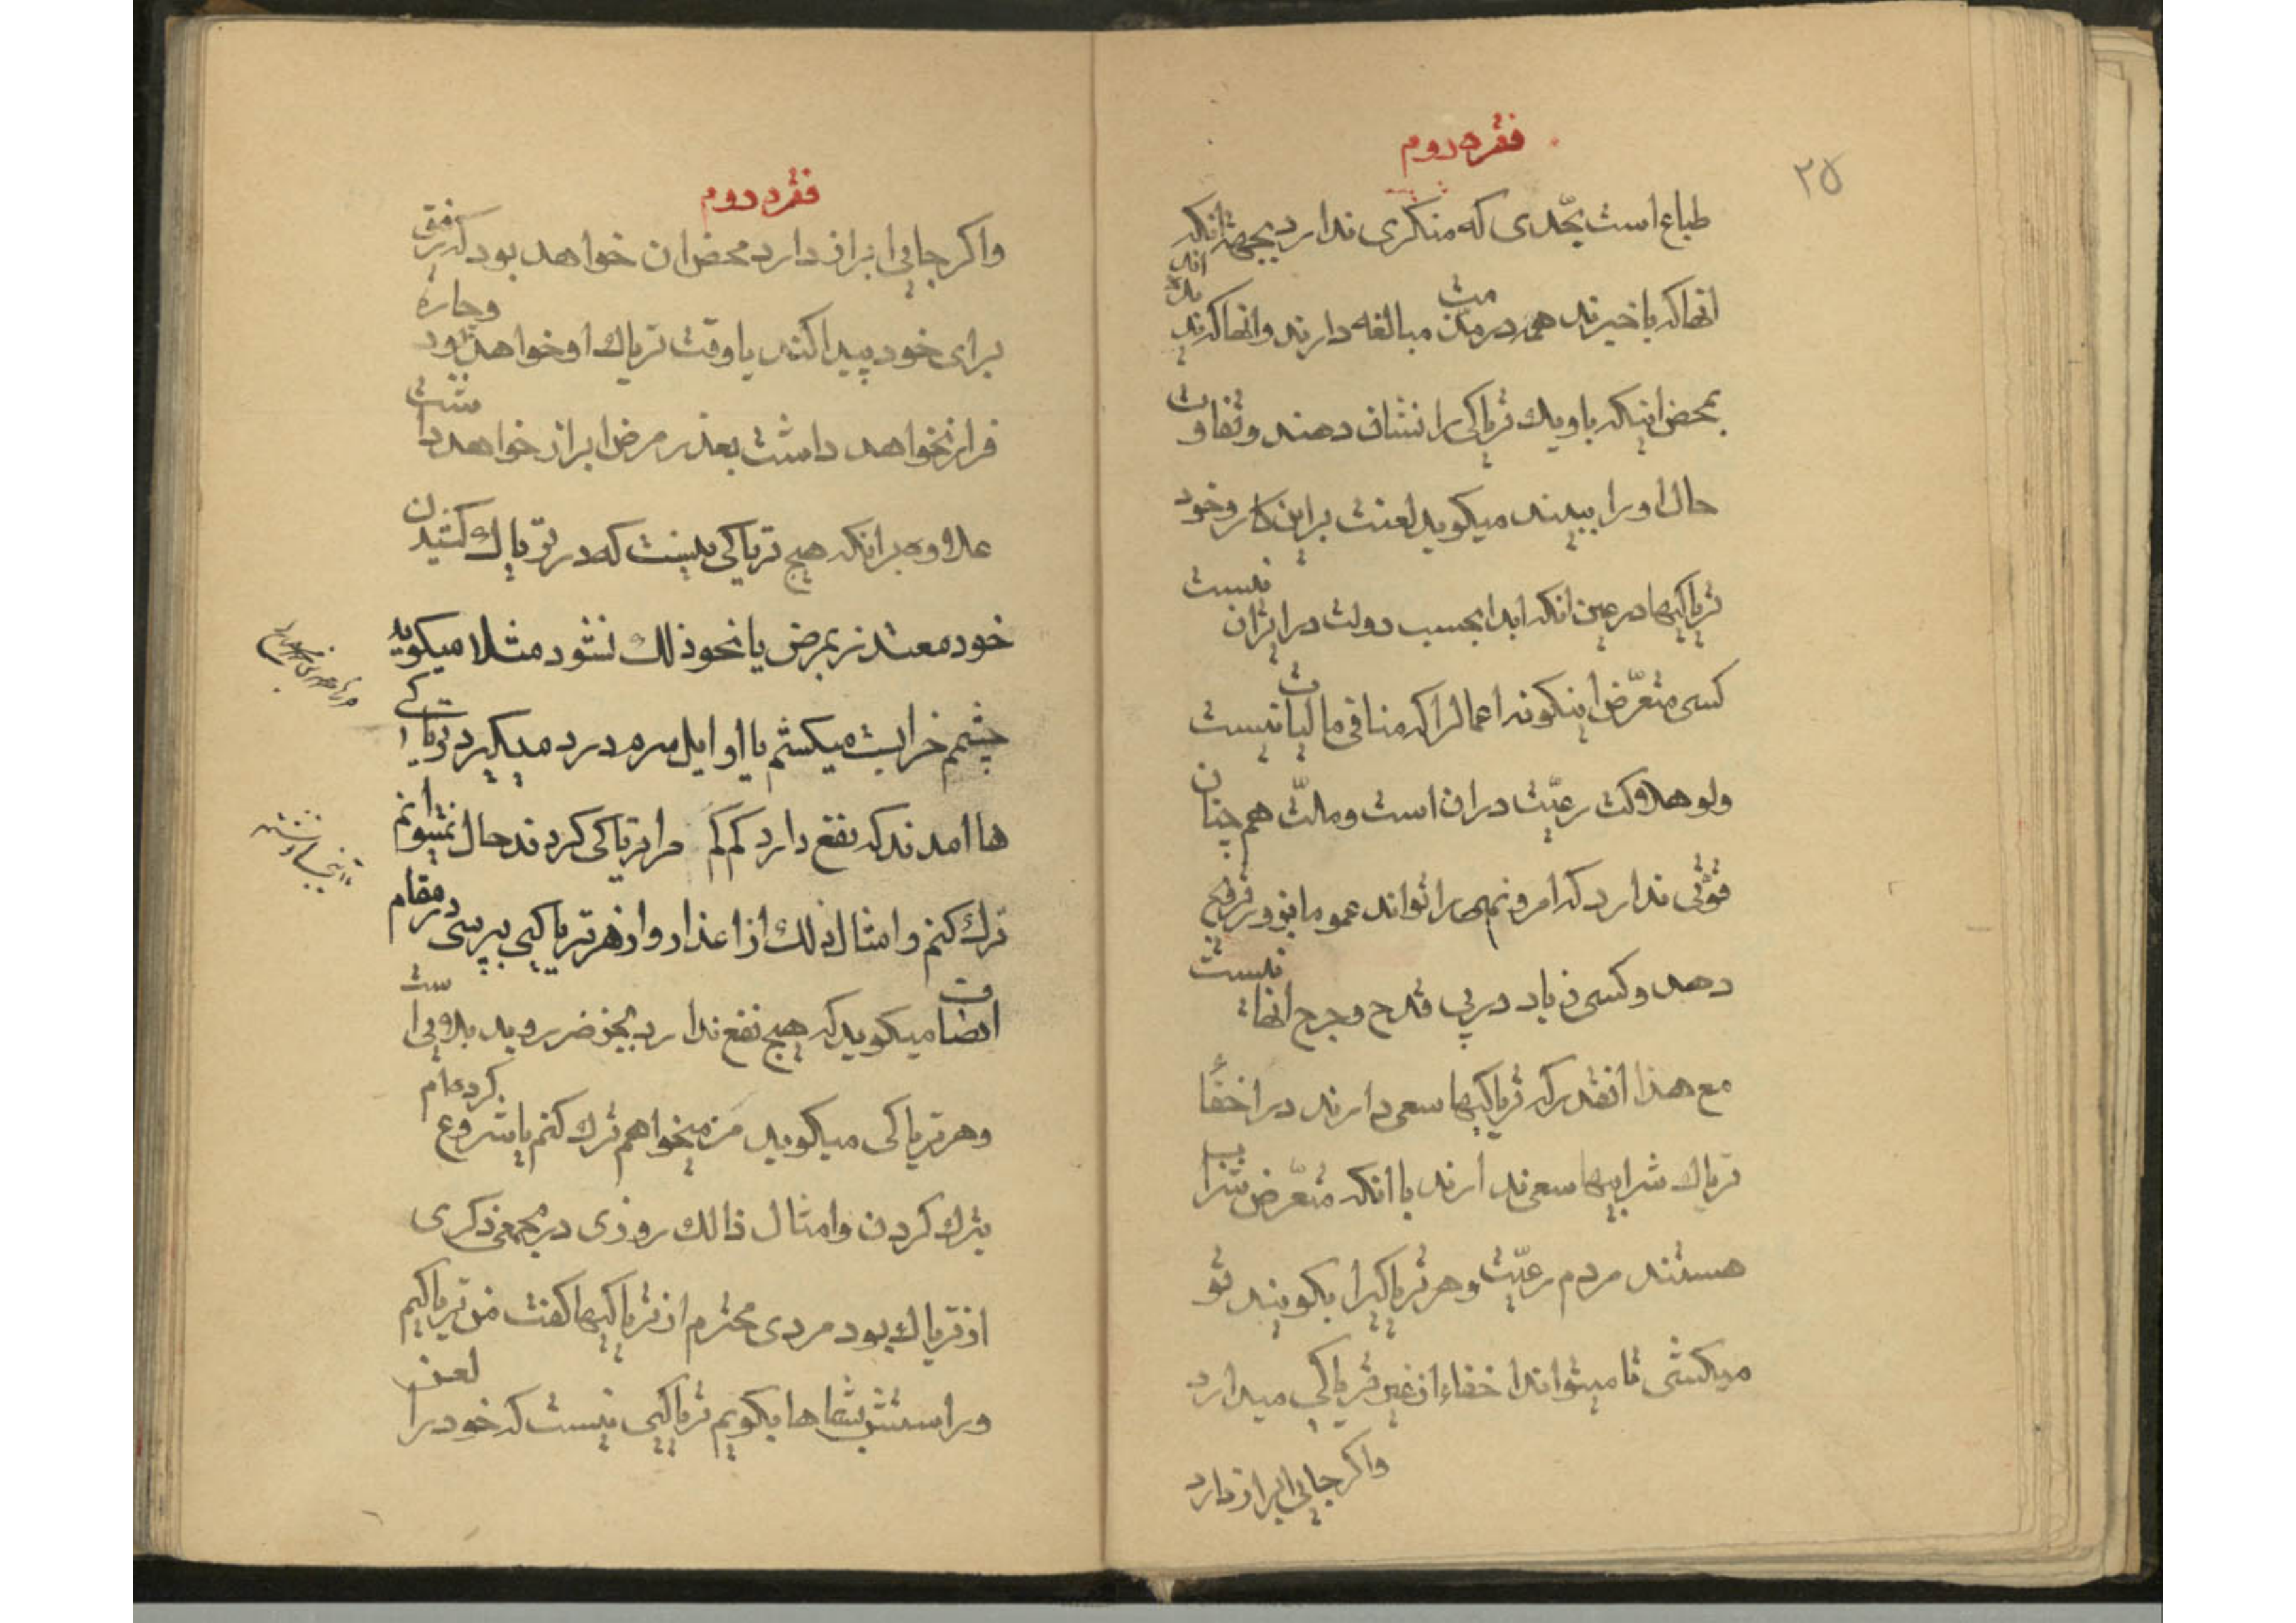 ۲۵
فقره دوم
طباع است بحّدی که منکری ندارد بجهة انکه
انها که باخبرند همه در مذمت مبالغه دارند وانها که نه اند
بمحض اینکه باو یك تریاکی را نشان دهند وتفاوت
حال او را ببیند میکوید لعنت براین کار وخود
تریاکیها در عین انکه ابدا بحسب دولت در ایران نیست
کسی متعّرض اینکونه اعمال را که منافی مالیات نیست
ولو هلاکت رعیّت در ان است وملّت هم چنان
قوّتی ندارد که امر ونهی را تواند عموما بزور ترویج
دهد وکسی زیاد در پی قدح وجرح انها نیست
مع هذا انقدر که تریاکیها سعی دارند در اخفاء
تریاك شرابیها سعی ندارند با انکه متعّرض شراب
هستند مردم رعیّت وهر تریاکیرا بکویند تو
میکشی تا میتواند اخفاء از غیر تریاکی میدارد
واکر جایی ابراز دارد
فقره دوم
واکر جایی ابراز دارد محض ان خواهد بود که رفیقی
برای خود پیدا کند یا وقت تریاك او خواهد بود وچاره
فرار نخواهد داشت بعذر مرض ابراز خواهد داشت
علاوه برانکه هیچ تریاکی نیست که در تریاك کشیدن
خود معتذر بمرض یا نحو ذلك نشود مثلا میکوید
چشمم خرابست میکشم یا اوایل سرم درد میکرد تریاکی
ها امدند که نفع دارد کم کم مرا تریاکی کردند حال نمیتوانم
ترك کنم وامثال ذلك از اعذار واز هر تریاکیی بپرسی در مقام
انصاف میکوید که هیچ نفع ندارد بجز ضرر وبد بلایی است
وهر تریاکی میکوید من میخواهم ترك کنم یا شروع کرده ام
بترك کردن وامثال ذالك روزی در مجمعی ذکری
از تریاك بود مردی محترم از تریاکیها کفت من تریاکیم
وراستش بشماها بکویم تریاکیی نیست که خود را لعن